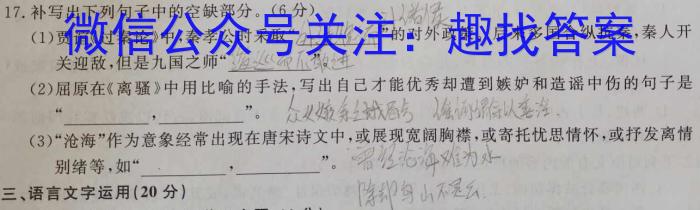 17.补写出下列句子中的空缺部分。(6分)
(1)贾谊《过秦论》中,秦孝公时采取“”的对外政策,后来多国合纵抗秦,秦人开
微信公众号关注:趣找答案
关迎敌,但是九国之师“逡巡而不敢进”
(2)屈原在《离骚》中用比喻的手法,写出自己才能优秀却遭到嫉妒和造谣中伤的句子是
“________,________”。众女嫉余之蛾眉兮 谣诼谓余以善淫
(3)“沧海”作为意象经常出现在唐宋诗文中,或展现宽阔胸襟,或寄托忧思情怀,或抒发离情
别绪等,如“________,________”。曾经沧海难为水
除却巫山不是云
三、语言文字运用(20分)